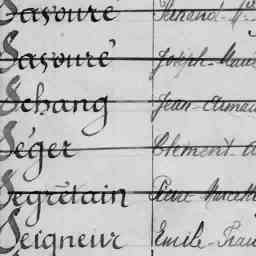 Savouré Fernand-M
Savouré Joseph-Marie
Schang Jean-Arma
Séger Clément-A
Segrétain Pierre Marcell
Seigneur Emile-Fran